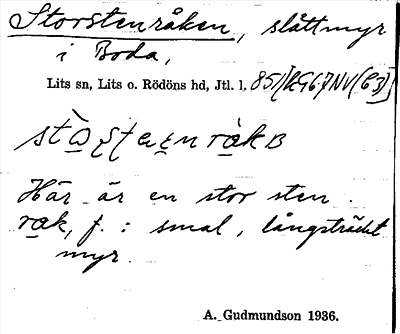 Storstenråken, slåttmyr
i Boda,
Lits sn, Lits o. Rödöns hd, Jtl. l.
Här är en stor sten.
råk, f. : smal, långsträckt
myr.
A. Gudmundson 1936.